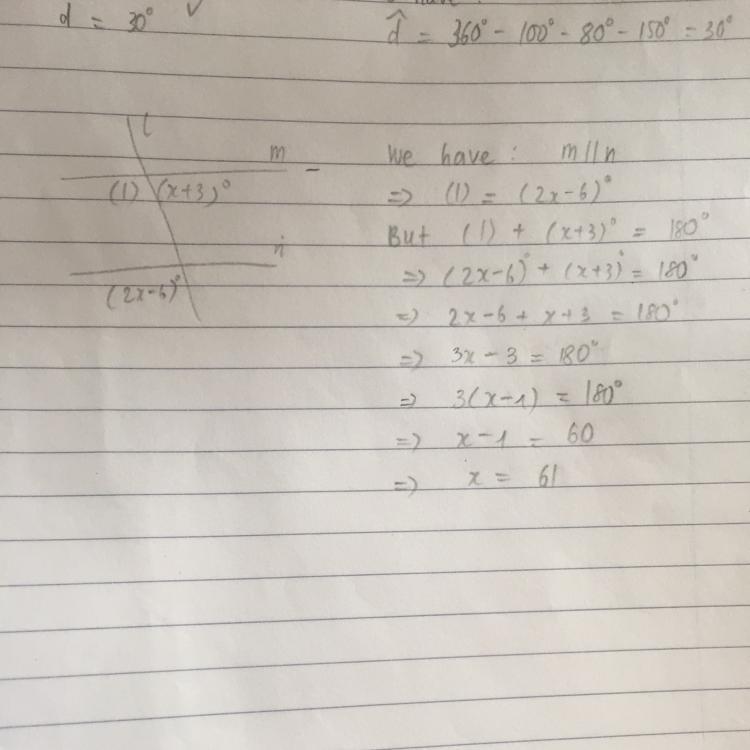 d = 30° ✓
d̂ = 360° - 100° - 80° - 150° = 30°
l
m
(1) (x+3)°
n
(2x-6)°
We have : m//n
=> (1) = (2x-6)°
But (1) + (x+3)° = 180°
=> (2x-6)° + (x+3)° = 180°
=> 2x-6 + x+3 = 180°
=> 3x - 3 = 180°
=> 3(x-1) = 180°
=> x-1 = 60
=> x = 61